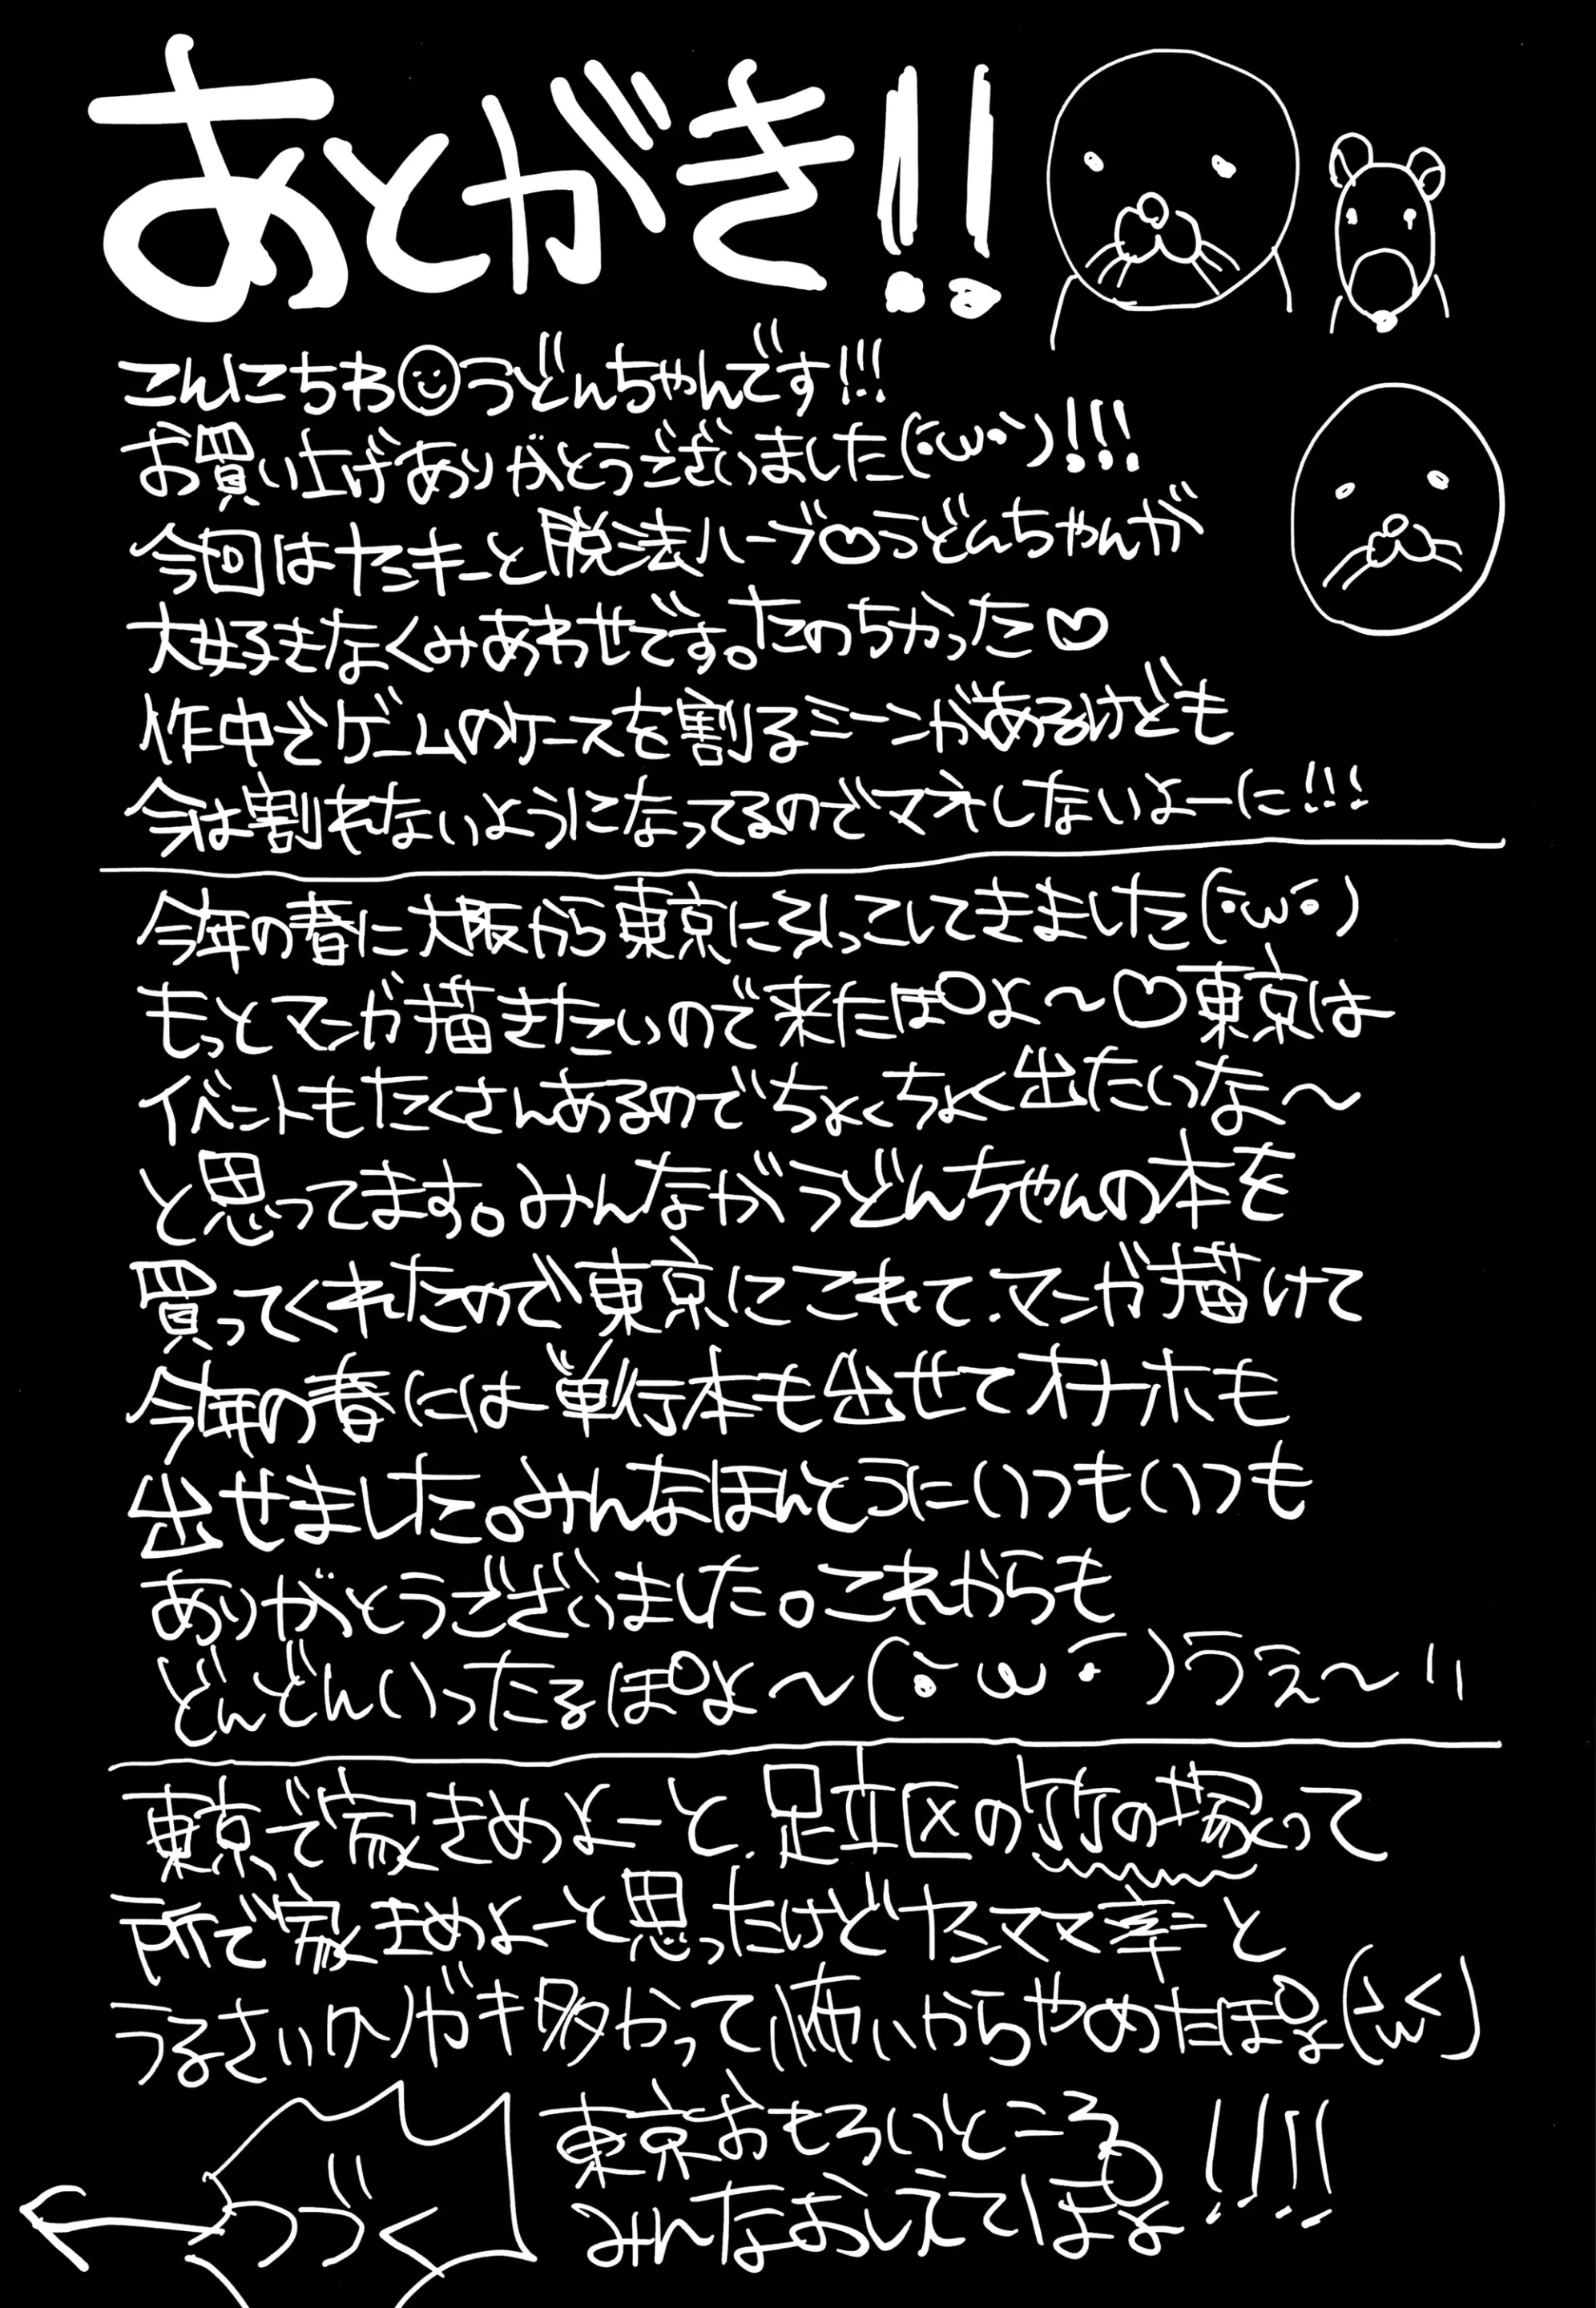 あとがき!!
こんにちわ☺うどんちゃんです!!!
お買い上げありがとうございました(・ω・)!!!
今回はヤンキーと脱法ハーブ♡うどんちゃんが
大好きなくみあわせです。たのちかった♡
作中でゲームのケースを割るシーンがあるけども
今は割れないようになってるのでマネしないよーに!!!
今年の春に大阪から東京に引っこしてきました(・ω・)
もっとマンガ描きたいので来たぽよ〜♡東京は
イベントもたくさんあるのでちょくちょく出たいな〜
と思ってます。みんながうどんちゃんの本を
買ってくれたので東京にこれて、マンガ描けて
今年の春には単行本も出せてオナホも
出せました。みんなほんとうにいつもいつも
ありがとうございました。これからも
どんどんいったるぽよ〜(・ω・)うぇ〜!!
東京で家きめよーと、足立区の竹の塚って
所で家きめよーと思ったけどヤンママ率と
うるさいクソガキ多かって怖いからやめたぽよ(>ω<)
東京おもろいところ
みんなおしえてしぽよ!!!!
つづく